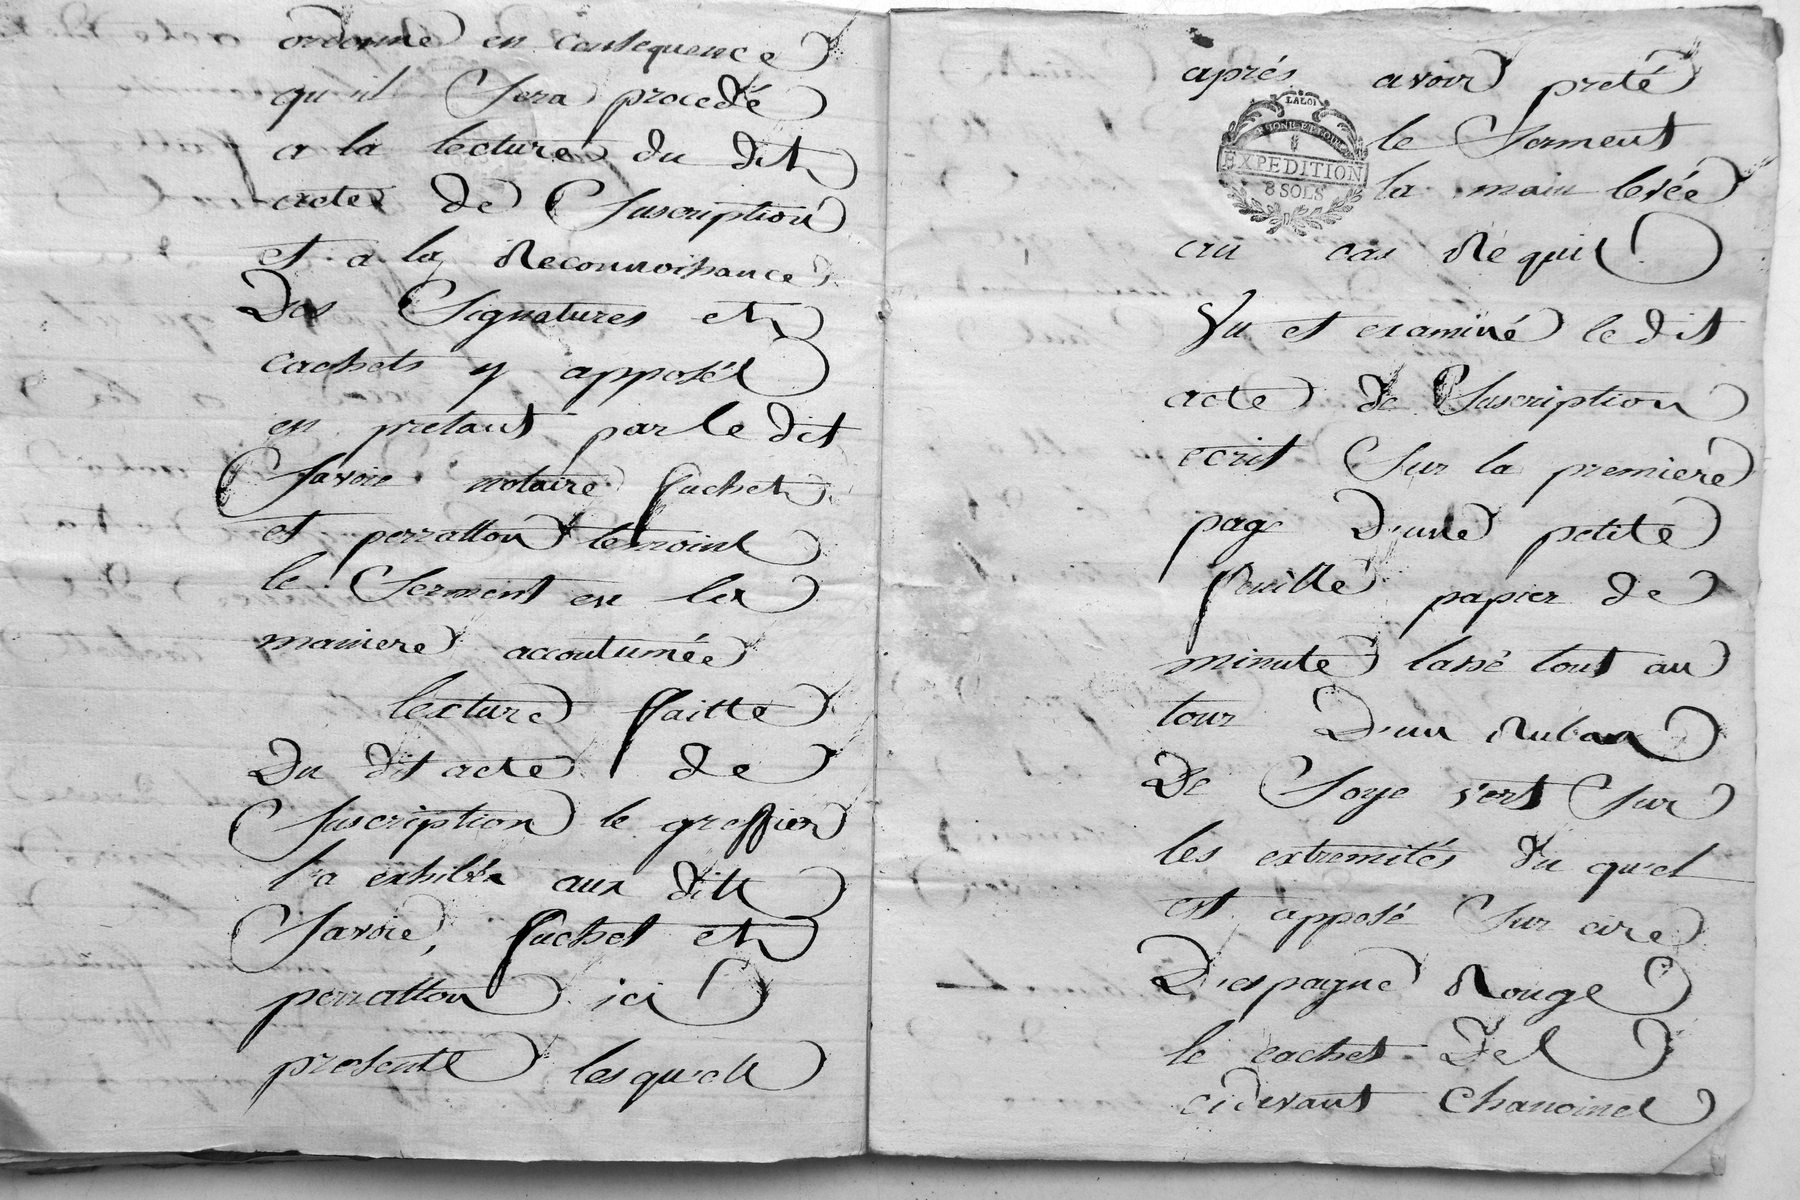 ordonne en consequence
qu'il sera procedé
a la lecture du dit
acte de suscription
et a la reconnoissance
des signatures et
cachets y apposés
en pretant par le dit
Savoie notaire fuchet
et perratton temoins
le serment en la
maniere accoutumée
lecture faitte
du dit acte de
suscription le greffier
l'a exhibée aux dits
Savoie, fuchet et
perratton ici
presents lesquels
après avoir preté
LA LOI
EXPEDITION
8 SOLS
le serment
la main levée
au cas requis
Vu et examiné le dit
acte de suscription
ecrit sur la premiere
page d'une petite
feuille papier de
minute lassé tout au
tour d'un ruban
de soye vert sur
les extremités du quel
est apposé sur cire
d'espagne rouge
le cachet des
cidevant chanoines